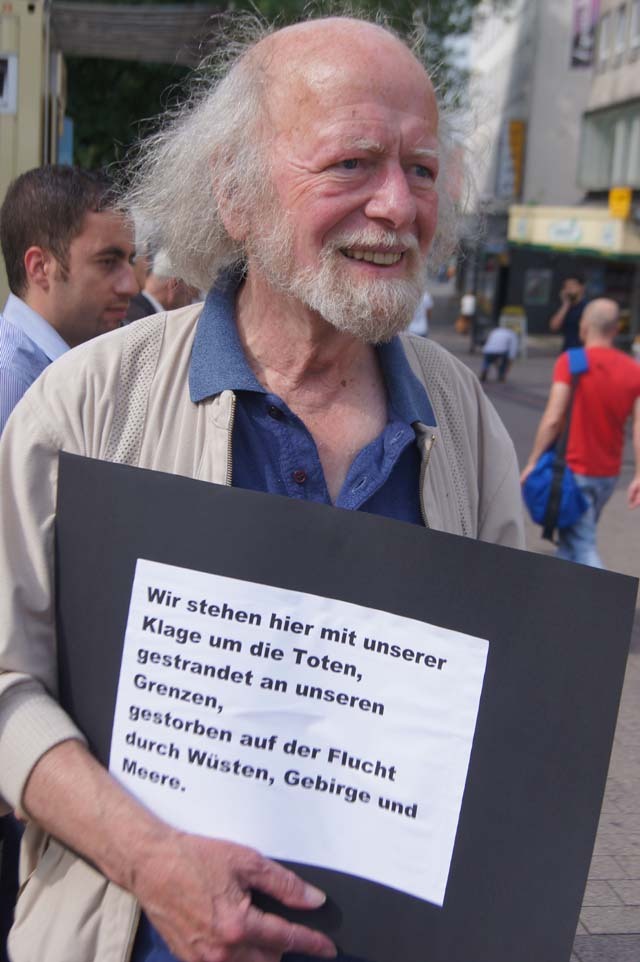 Wir stehen hier mit unserer
Klage um die Toten,
gestrandet an unseren
Grenzen,
gestorben auf der Flucht
durch Wüsten, Gebirge und
Meere.